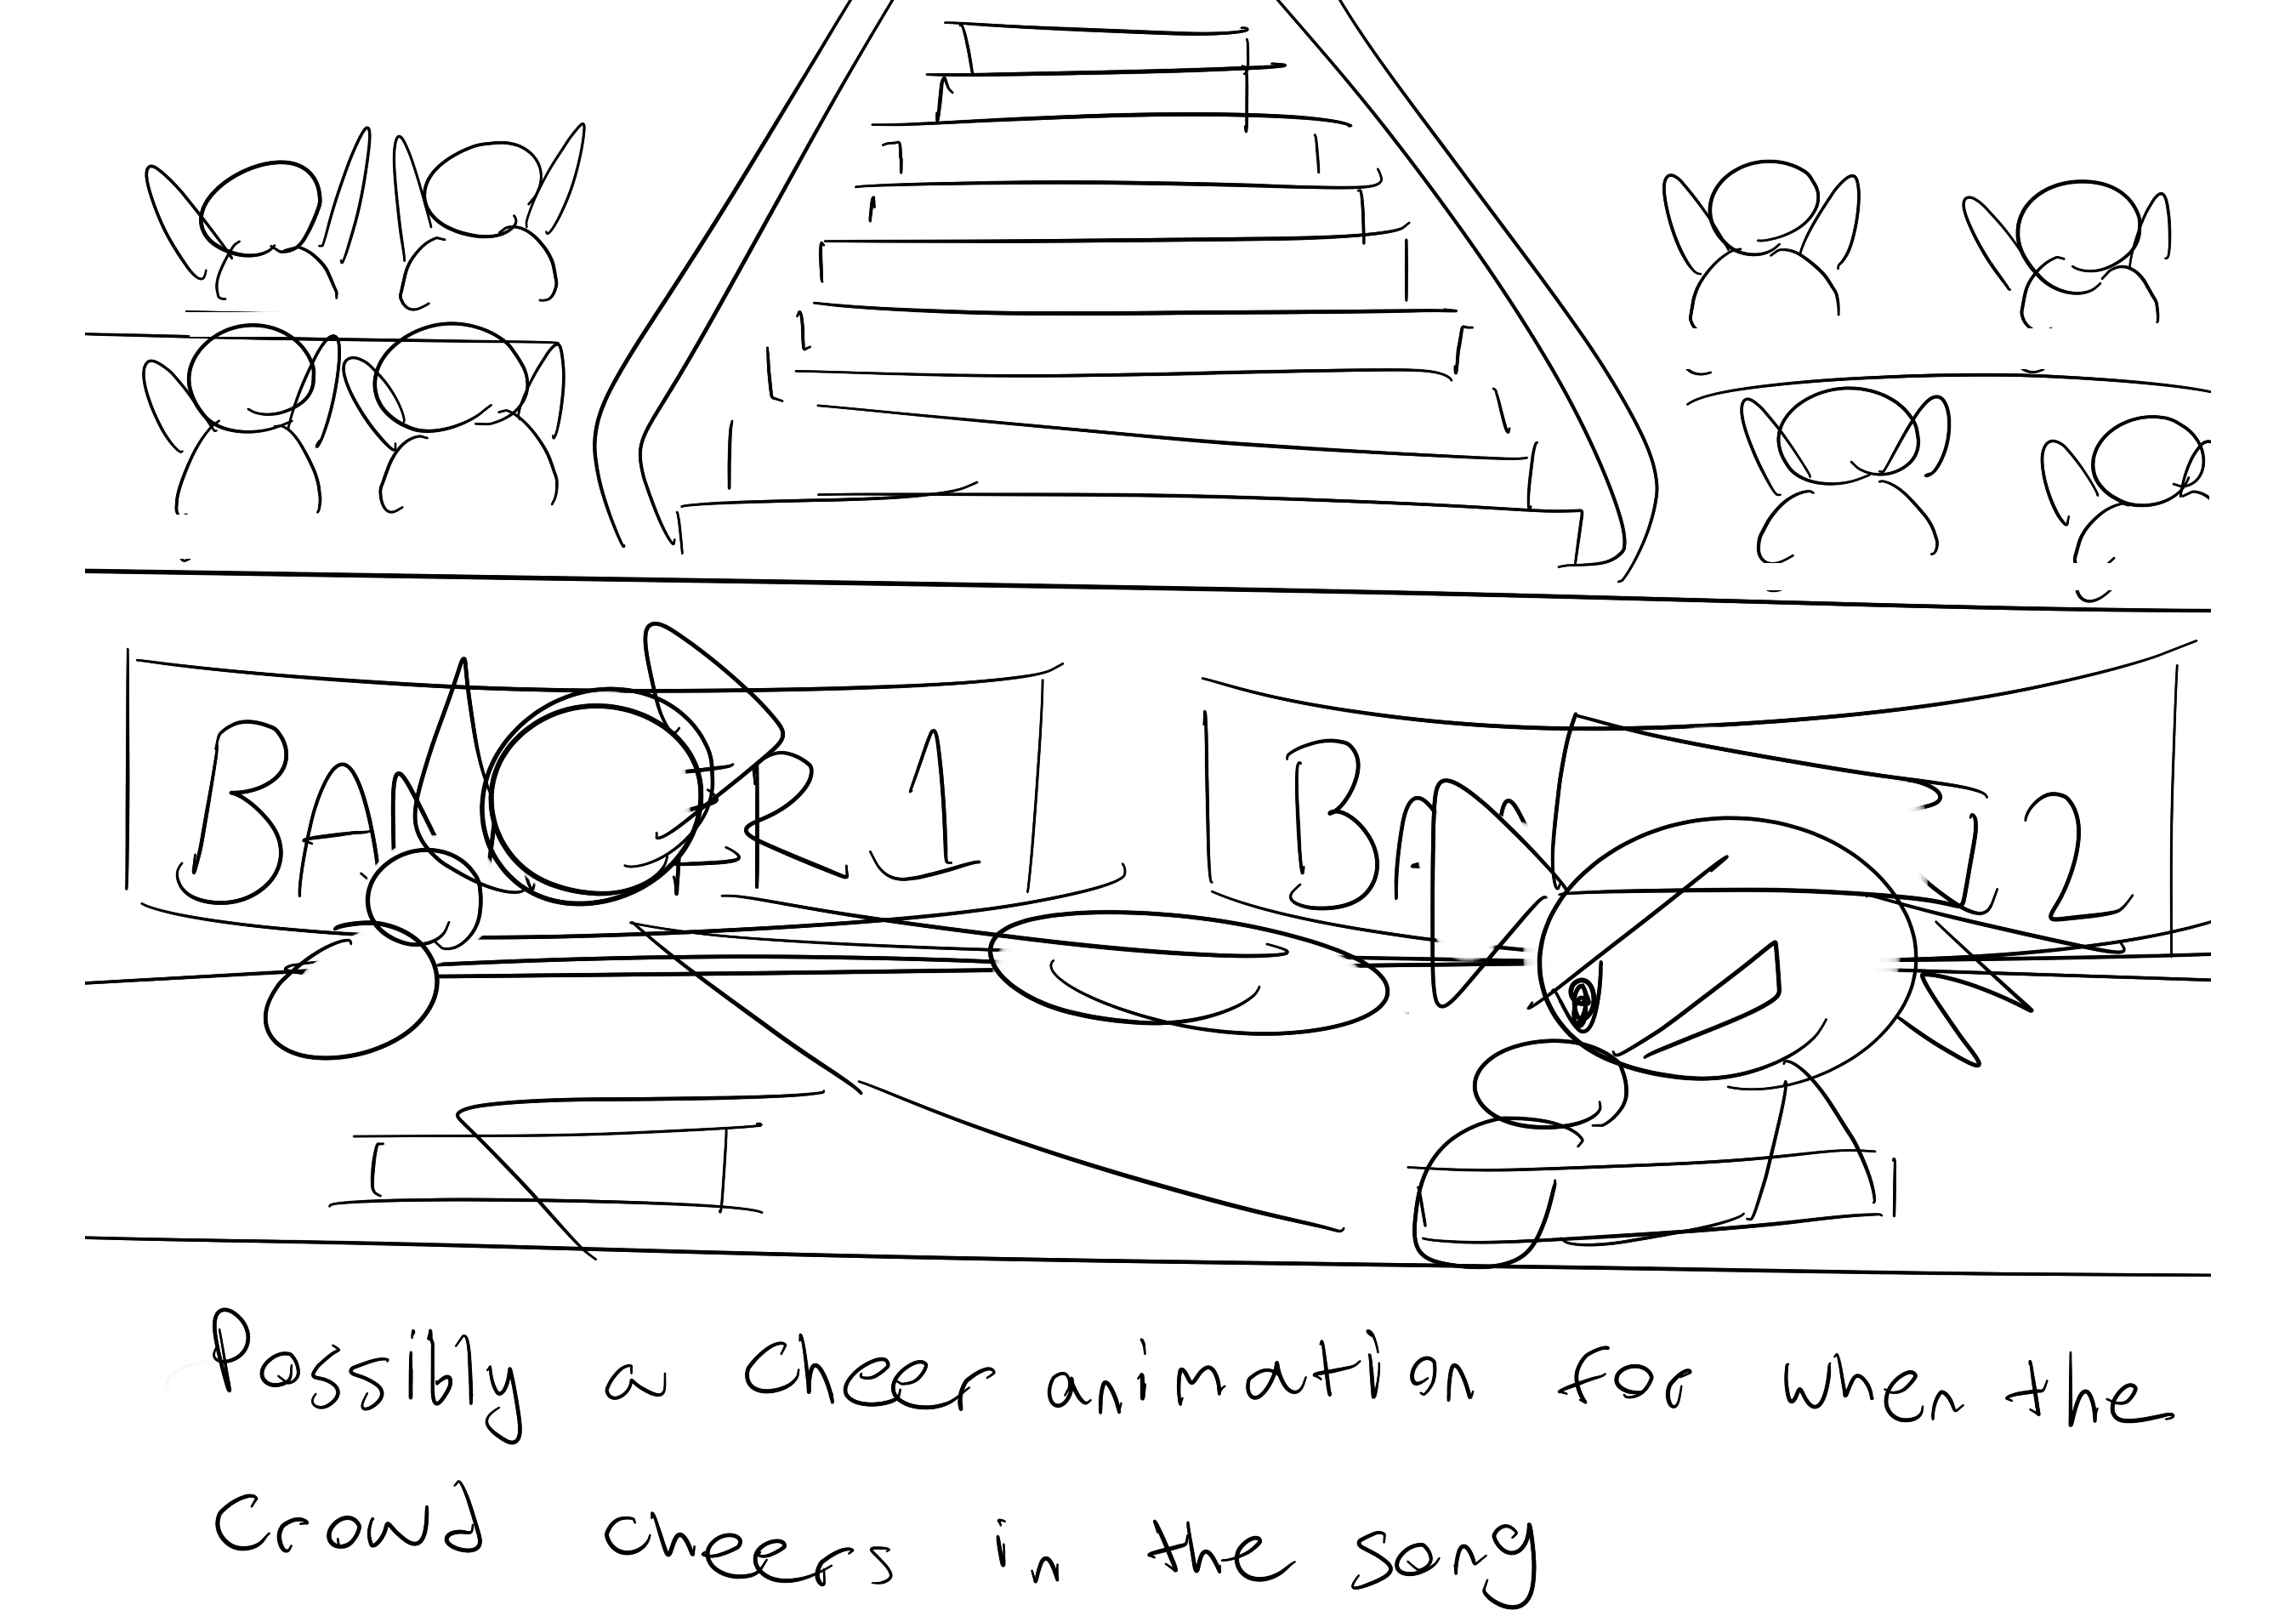 BAN ER 1
BAN 2
Possibly a cheer animation for when the
Crowd cheers in the song